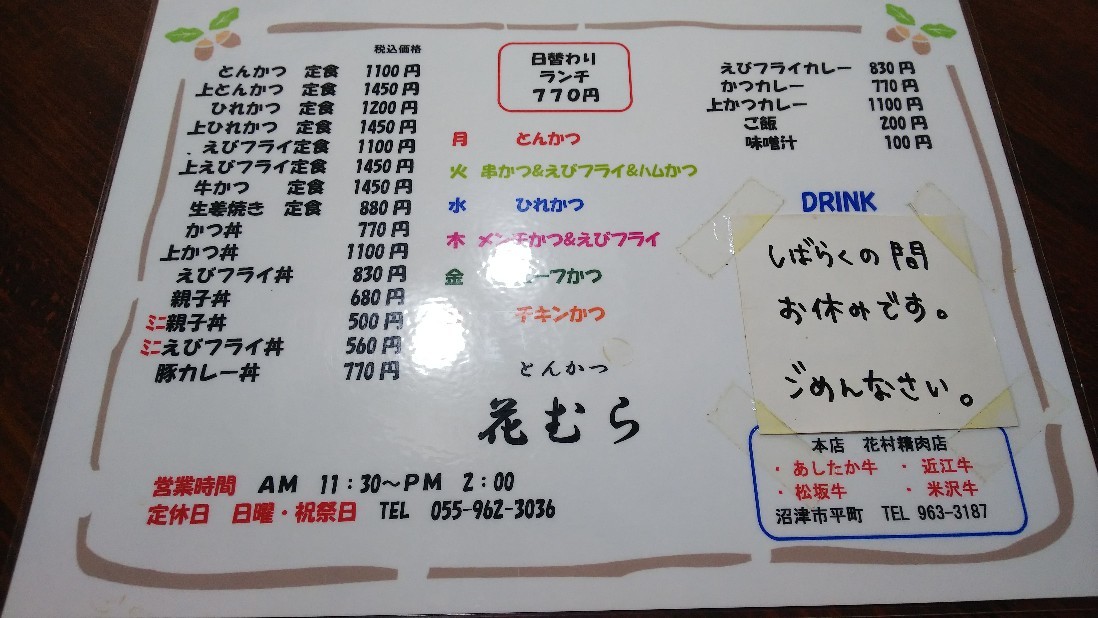 税込価格
とんかつ 定食 1100円
上とんかつ 定食 1450円
ひれかつ 定食 1200円
上ひれかつ 定食 1450円
えびフライ定食 1100円
上えびフライ定食 1450円
牛かつ 定食 1450円
生姜焼き 定食 880円
かつ丼 770円
上かつ丼 1100円
えびフライ丼 830円
親子丼 680円
ミニ親子丼 500円
ミニえびフライ丼 560円
豚カレー丼 770円
日替わり
ランチ
770円
月 とんかつ
火 串かつ&えびフライ&ハムかつ
水 ひれかつ
木 メンチかつ&えびフライ
金 ーフかつ
チキンかつ
とんかつ
花むら
えびフライカレー 830円
かつカレー 770円
上かつカレー 1100円
ご飯 200円
味噌汁 100円
DRINK
しばらくの間
お休みです。
ごめんなさい。
本店 花村精肉店
・あしたか牛 ・近江牛
・松坂牛 ・米沢牛
沼津市平町 TEL 963-3187
営業時間 AM 11:30〜PM 2:00
定休日 日曜・祝祭日 TEL 055-962-3036